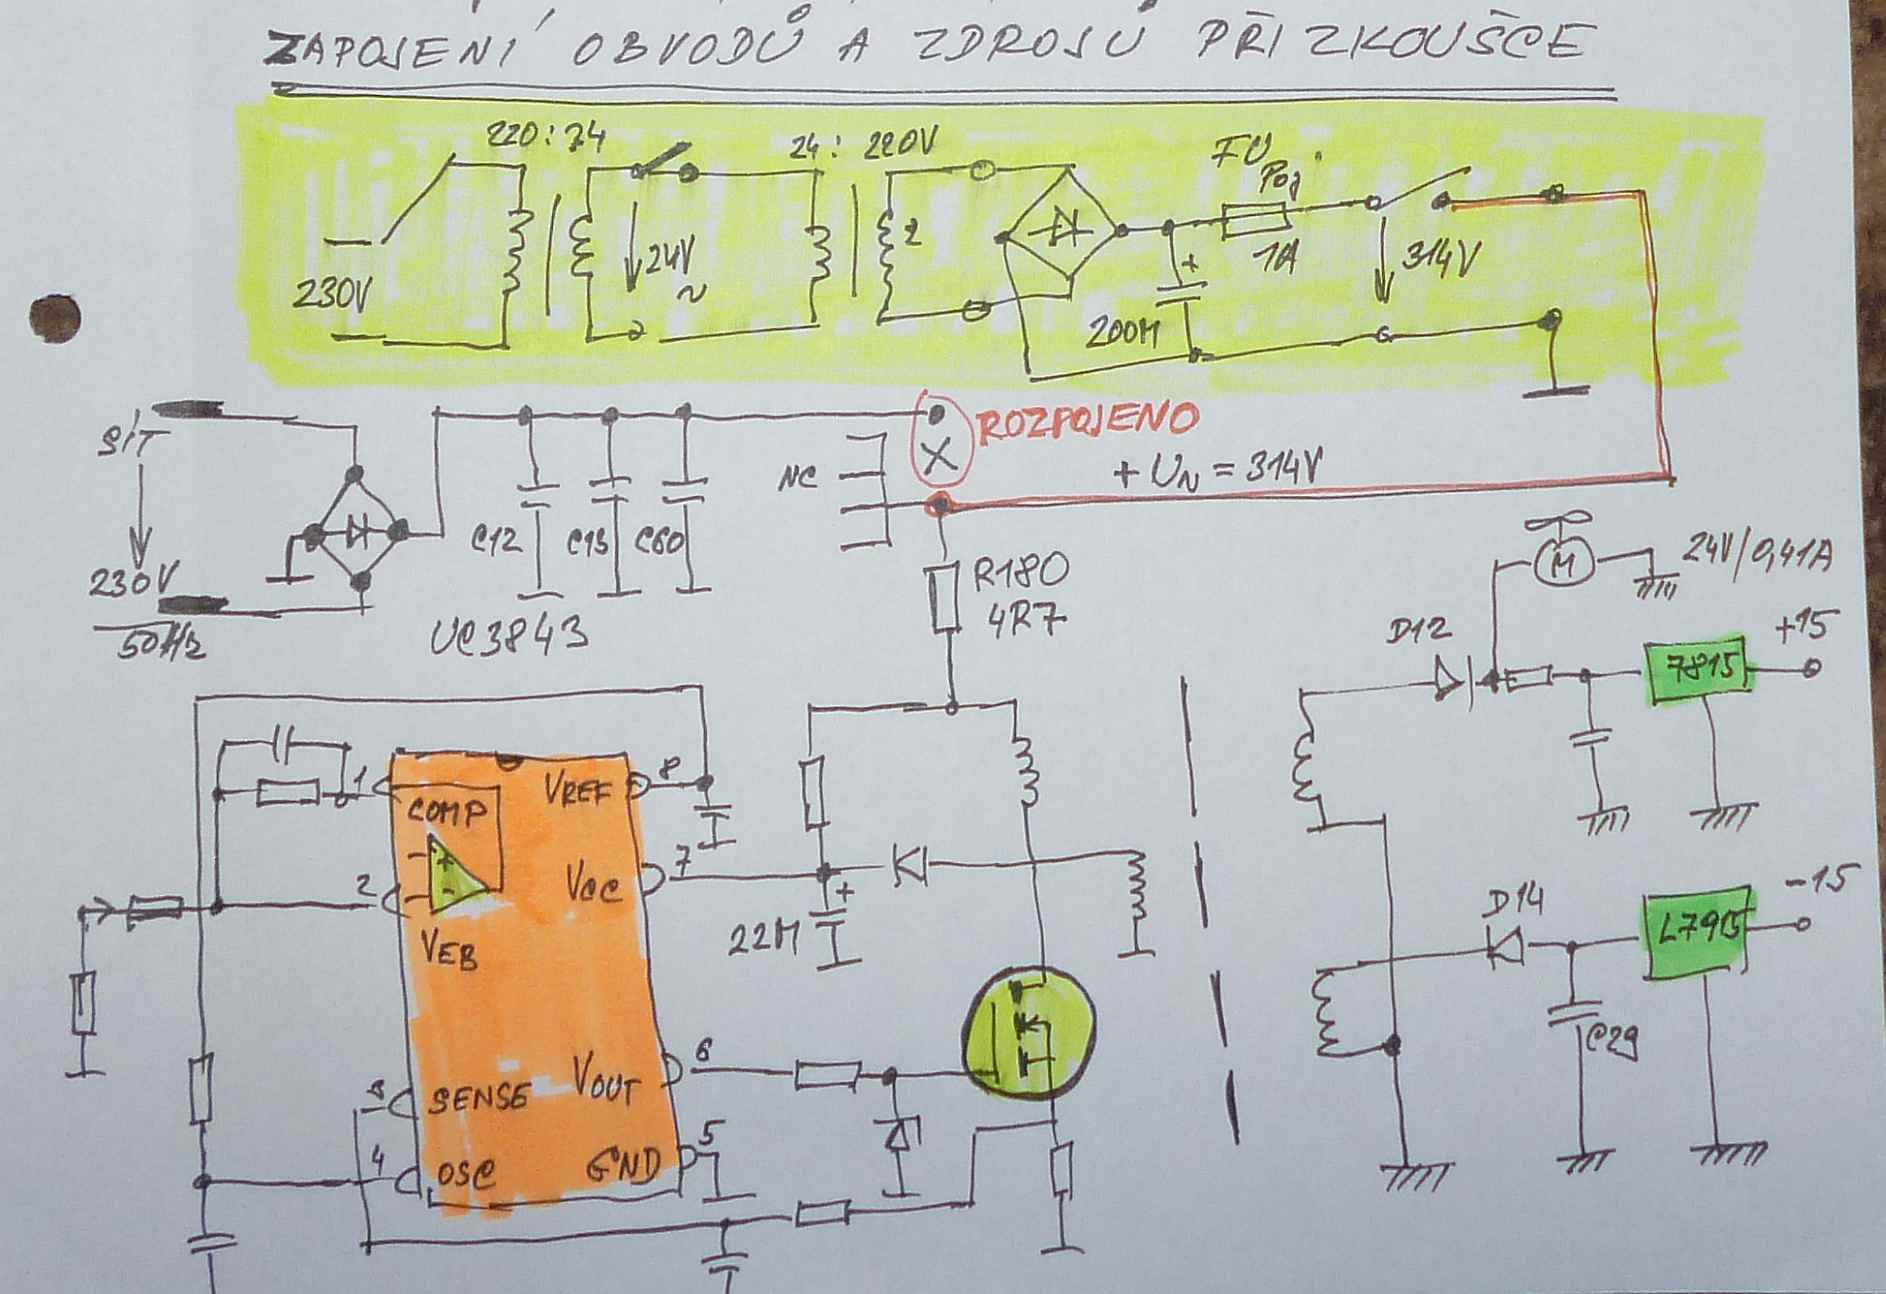 ZAPOJENÍ OBVODŮ A ZDROJŮ PŘI ZKOUŠCE
220:24
24:220V
FU
Poj.
230V
24V
~
2
+
200M
1A
314V
SÍŤ
230V
50Hz
C12
C13
C60
NC
X
ROZPOJENO
+UN = 314V
R180
4R7
UC3843
M
24V/0,41A
D12
7815
+15
1
COMP
VREF
8
+
-
2
VEB
VCC
7
22M
+
D14
L7915
-15
C29
3
SENSE
VOUT
6
4
OSC
GND
5